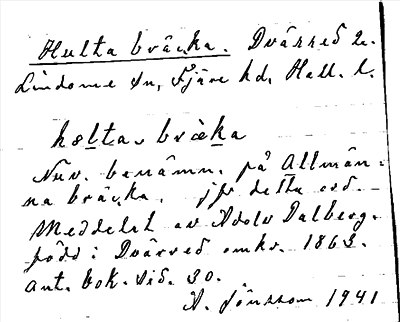 Hulta bräcka. Dvärred 2.
Lindome sn, Fjäre hd, Hall. l.
hɵlta, bræka
Nuv. benämn. på Allmän-
na bräcka. jfr detta ord.
Meddelat av Adolv Dalberg.
född i Dvärred omkr. 1863.
Ant. bok. sid. 30.
A. Jönsson 1941